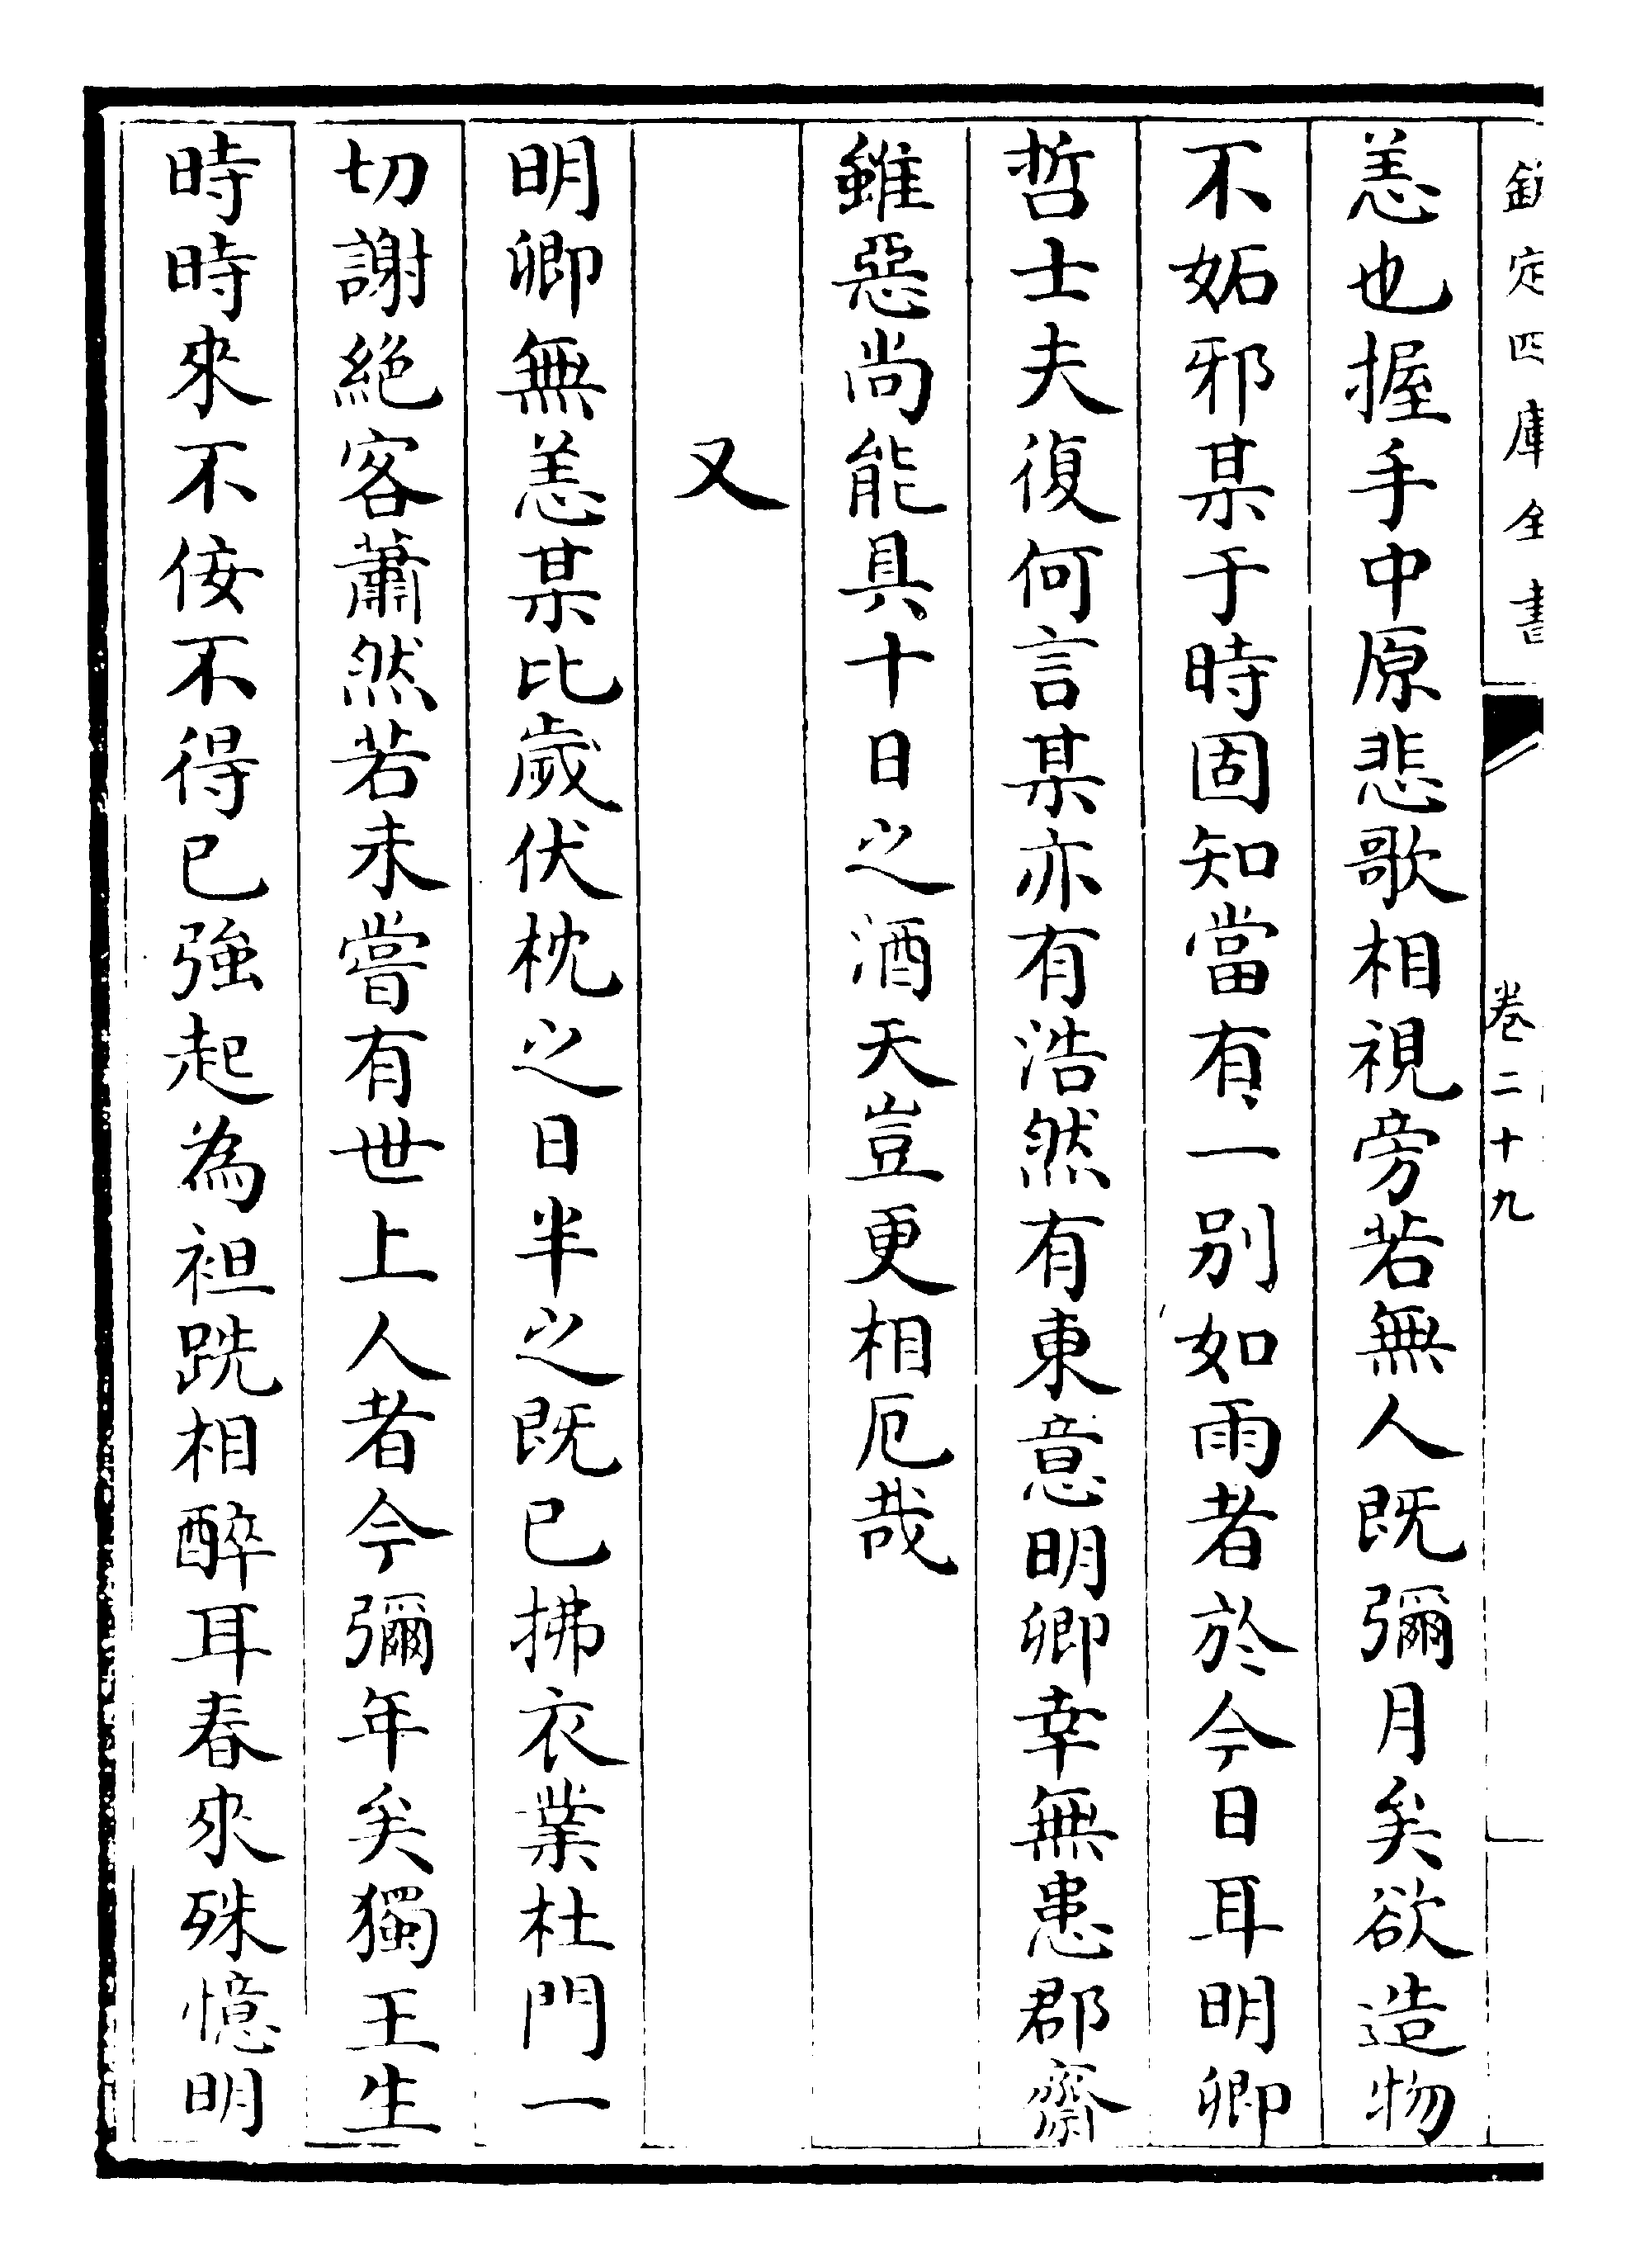 欽定四庫全書
卷二十九
恙也握手中原悲歌相視旁若無人既彌月矣欲造物
不妬邪某于時固知當有一別如雨者於今日耳明卿
哲士夫復何言某亦有浩然有東意明卿幸無恙郡齋
雖惡尚能具十日之酒天豈更相厄哉
又
明卿無恙某比歲伏枕之日半之既已拂衣業杜門一
切謝絕客蕭然若未嘗有世上人者今彌年矣獨王生
時時來不佞不得已強起為袒跣相醉耳春來殊憶明